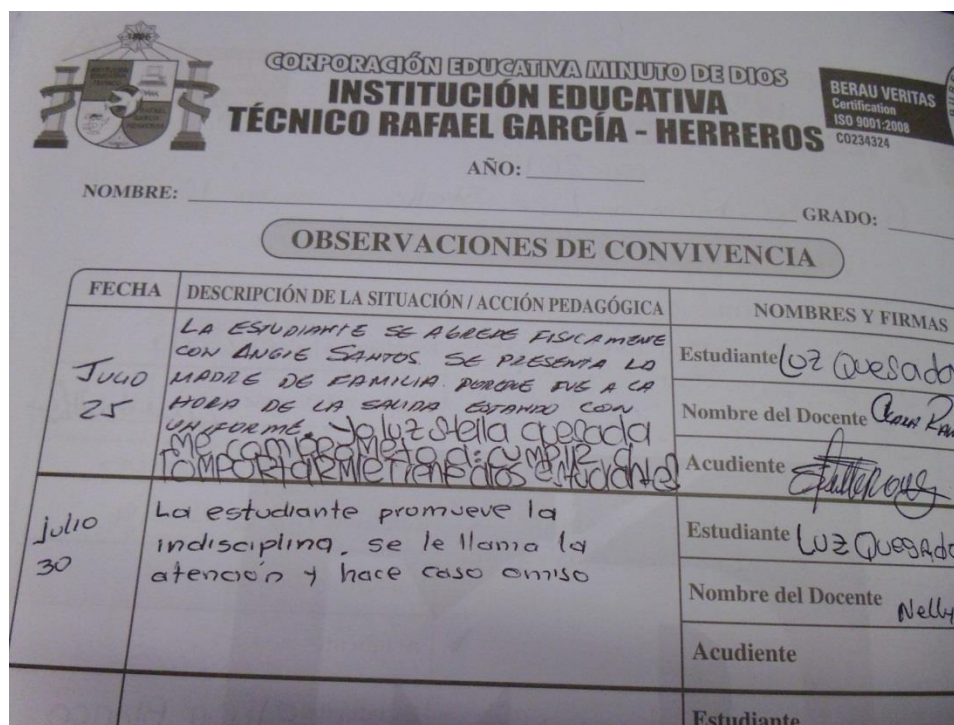 CORPORACIÓN EDUCATIVA MINUTO DE DIOS
INSTITUCIÓN EDUCATIVA
TÉCNICO RAFAEL GARCÍA - HERREROS
BERAU VERITAS
Certification
ISO 9001:2008
CO234324
AÑO:
NOMBRE:
GRADO:
OBSERVACIONES DE CONVIVENCIA
FECHA
DESCRIPCIÓN DE LA SITUACIÓN / ACCIÓN PEDAGÓGICA
NOMBRES Y FIRMAS
Julio
25
LA ESTUDIANTE SE AGREDE FISICAMENTE
CON ANGIE SANTOS. SE PRESENTA LA
MADRE DE FAMILIA. PORQUE FUE A LA
HORA DE LA SALIDA ESTANDO CON
UNIFORME. Yo luz stella quesada
me comprometo a: cumplir
estudiantes
Estudiante Luz Quesada
Nombre del Docente
Acudiente
julio
30
La estudiante promueve la
indisciplina, se le llama la
atención y hace caso omiso
Estudiante Luz Quesada
Nombre del Docente Nelly
Acudiente
Estudiante